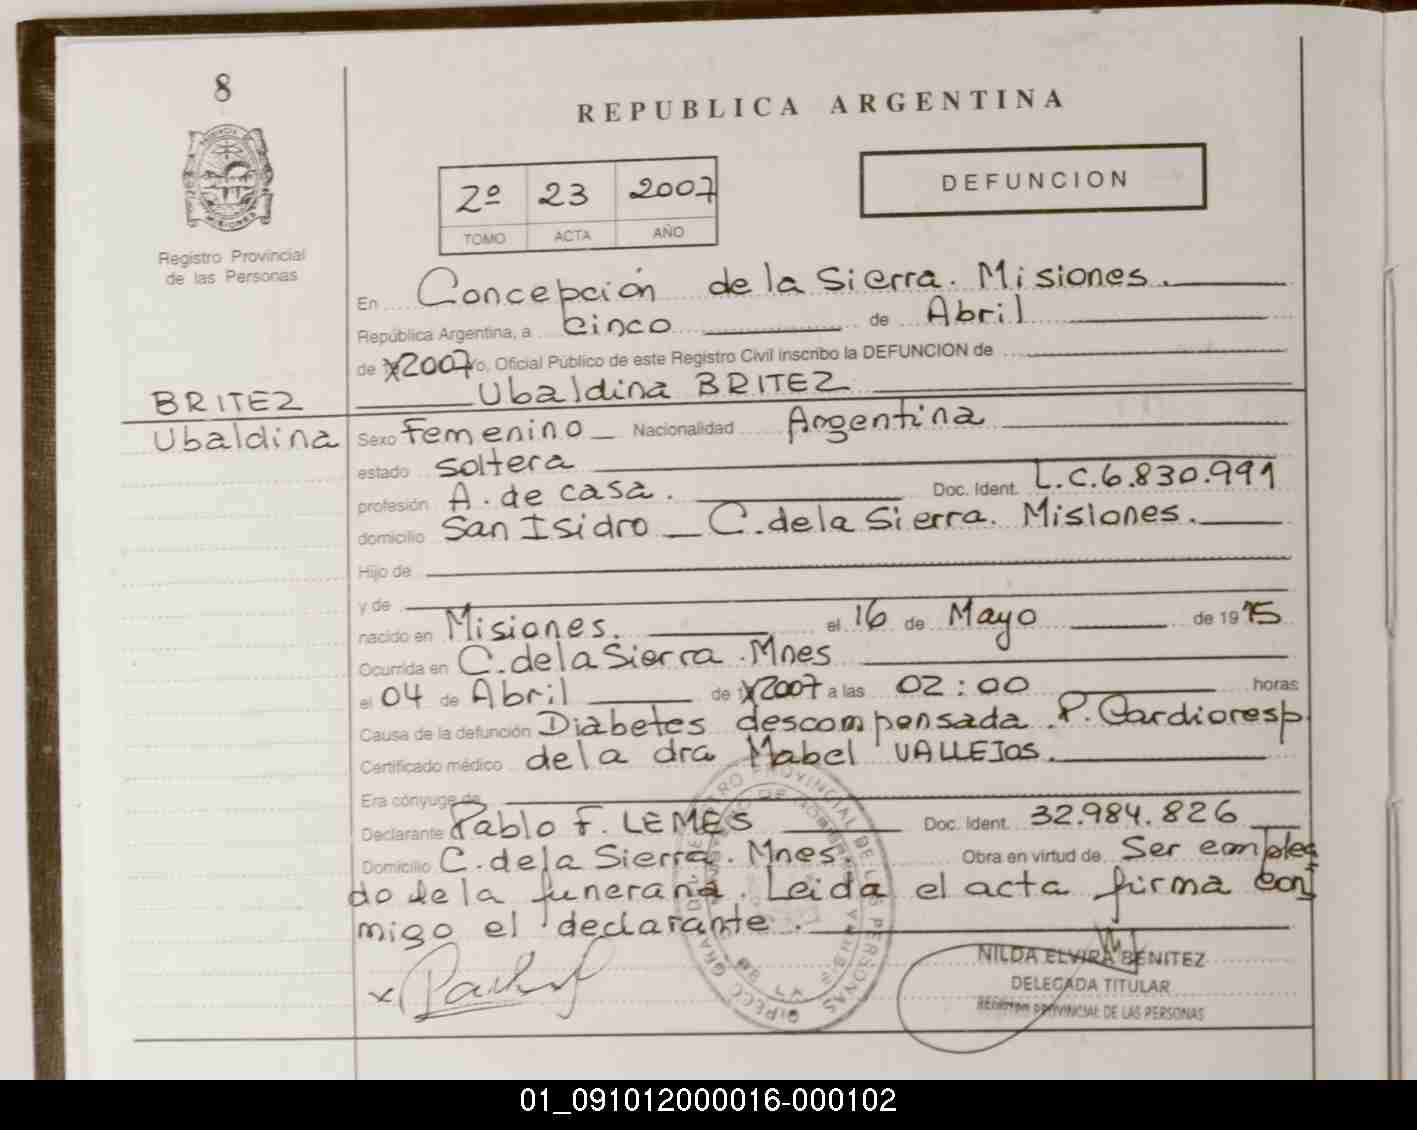 8
REPUBLICA ARGENTINA
2º 23 2007
TOMO ACTA AÑO
DEFUNCION
Registro Provincial
de las Personas
En Concepción de la Sierra. Misiones.
República Argentina, a cinco de Abril
de 2007 Oficial Público de este Registro Civil inscribo la DEFUNCION de
BRITEZ Ubaldina BRITEZ
Ubaldina Sexo Femenino Nacionalidad Argentina
estado Soltera
profesión A. de casa. Doc. Ident. L.C. 6.830.991
domicilio San Isidro _ C. de la Sierra. Misiones.
Hijo de
y de
nacido en Misiones. el 16 de Mayo de 19
Ocurrida en C. de la Sierra. Mnes
el 04 de Abril de 2007 a las 02:00 horas
Causa de la defunción Diabetes descompensada. P. Cardioresp
Certificado médico de la dra Mabel VALLEJOS.
Era cónyuge de
Declarante Pablo F. LEMES Doc. Ident. 32.984.826
Domicilio C. de la Sierra. Mnes. Obra en virtud de Ser emplea
do de la funeraria. Leida el acta firma con
migo el declarante.
x
NILDA ELVIRA BENITEZ
DELEGADA TITULAR
REGISTRO PROVINCIAL DE LAS PERSONAS
01_091012000016-000102